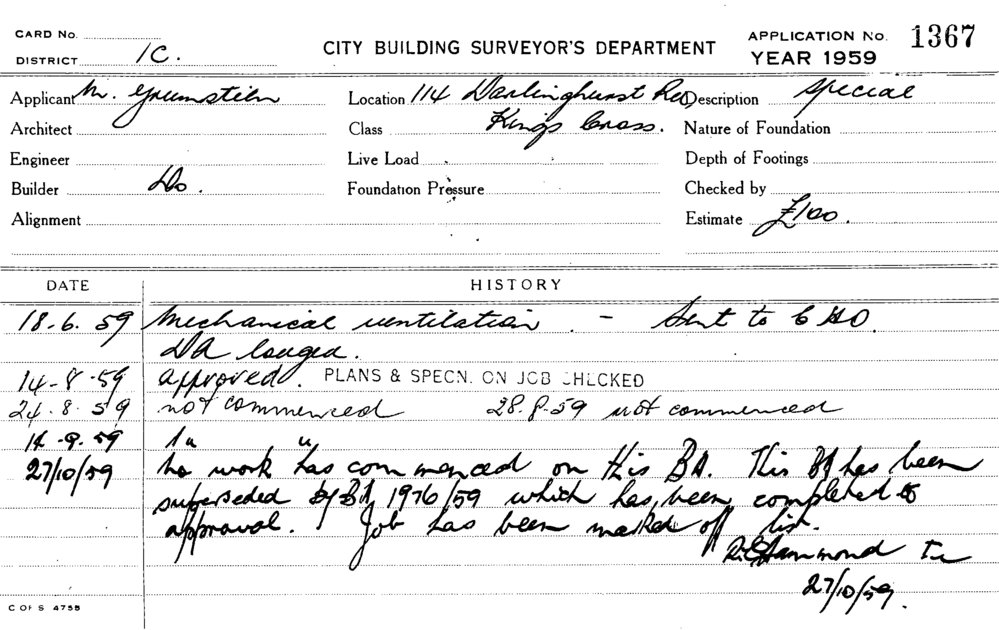 CARD No.
DISTRICT 1C.
CITY BUILDING SURVEYOR'S DEPARTMENT
APPLICATION No. 1367
YEAR 1959
Applicant M. Grumstien
Location 114 Darlinghurst Rd
Description Special
Architect
Class Kings Cross.
Nature of Foundation
Engineer
Live Load
Depth of Footings
Builder Do.
Foundation Pressure
Checked by
Alignment
Estimate £100.
DATE HISTORY
18.6.59 Mechanical ventilation. – Sent to CHO.
DA lodged.
14-8-59 approved. PLANS & SPECN. ON JOB CHECKED
24.8.59 not commenced 28.8.59 not commenced
14.9.59 " "
27/10/59 no work has commenced on this BA. This BA has been
superseded by BA 1976/59 which has been completed to
approval. Job has been marked off list.
Hammond
27/10/59.
C OF S 4755